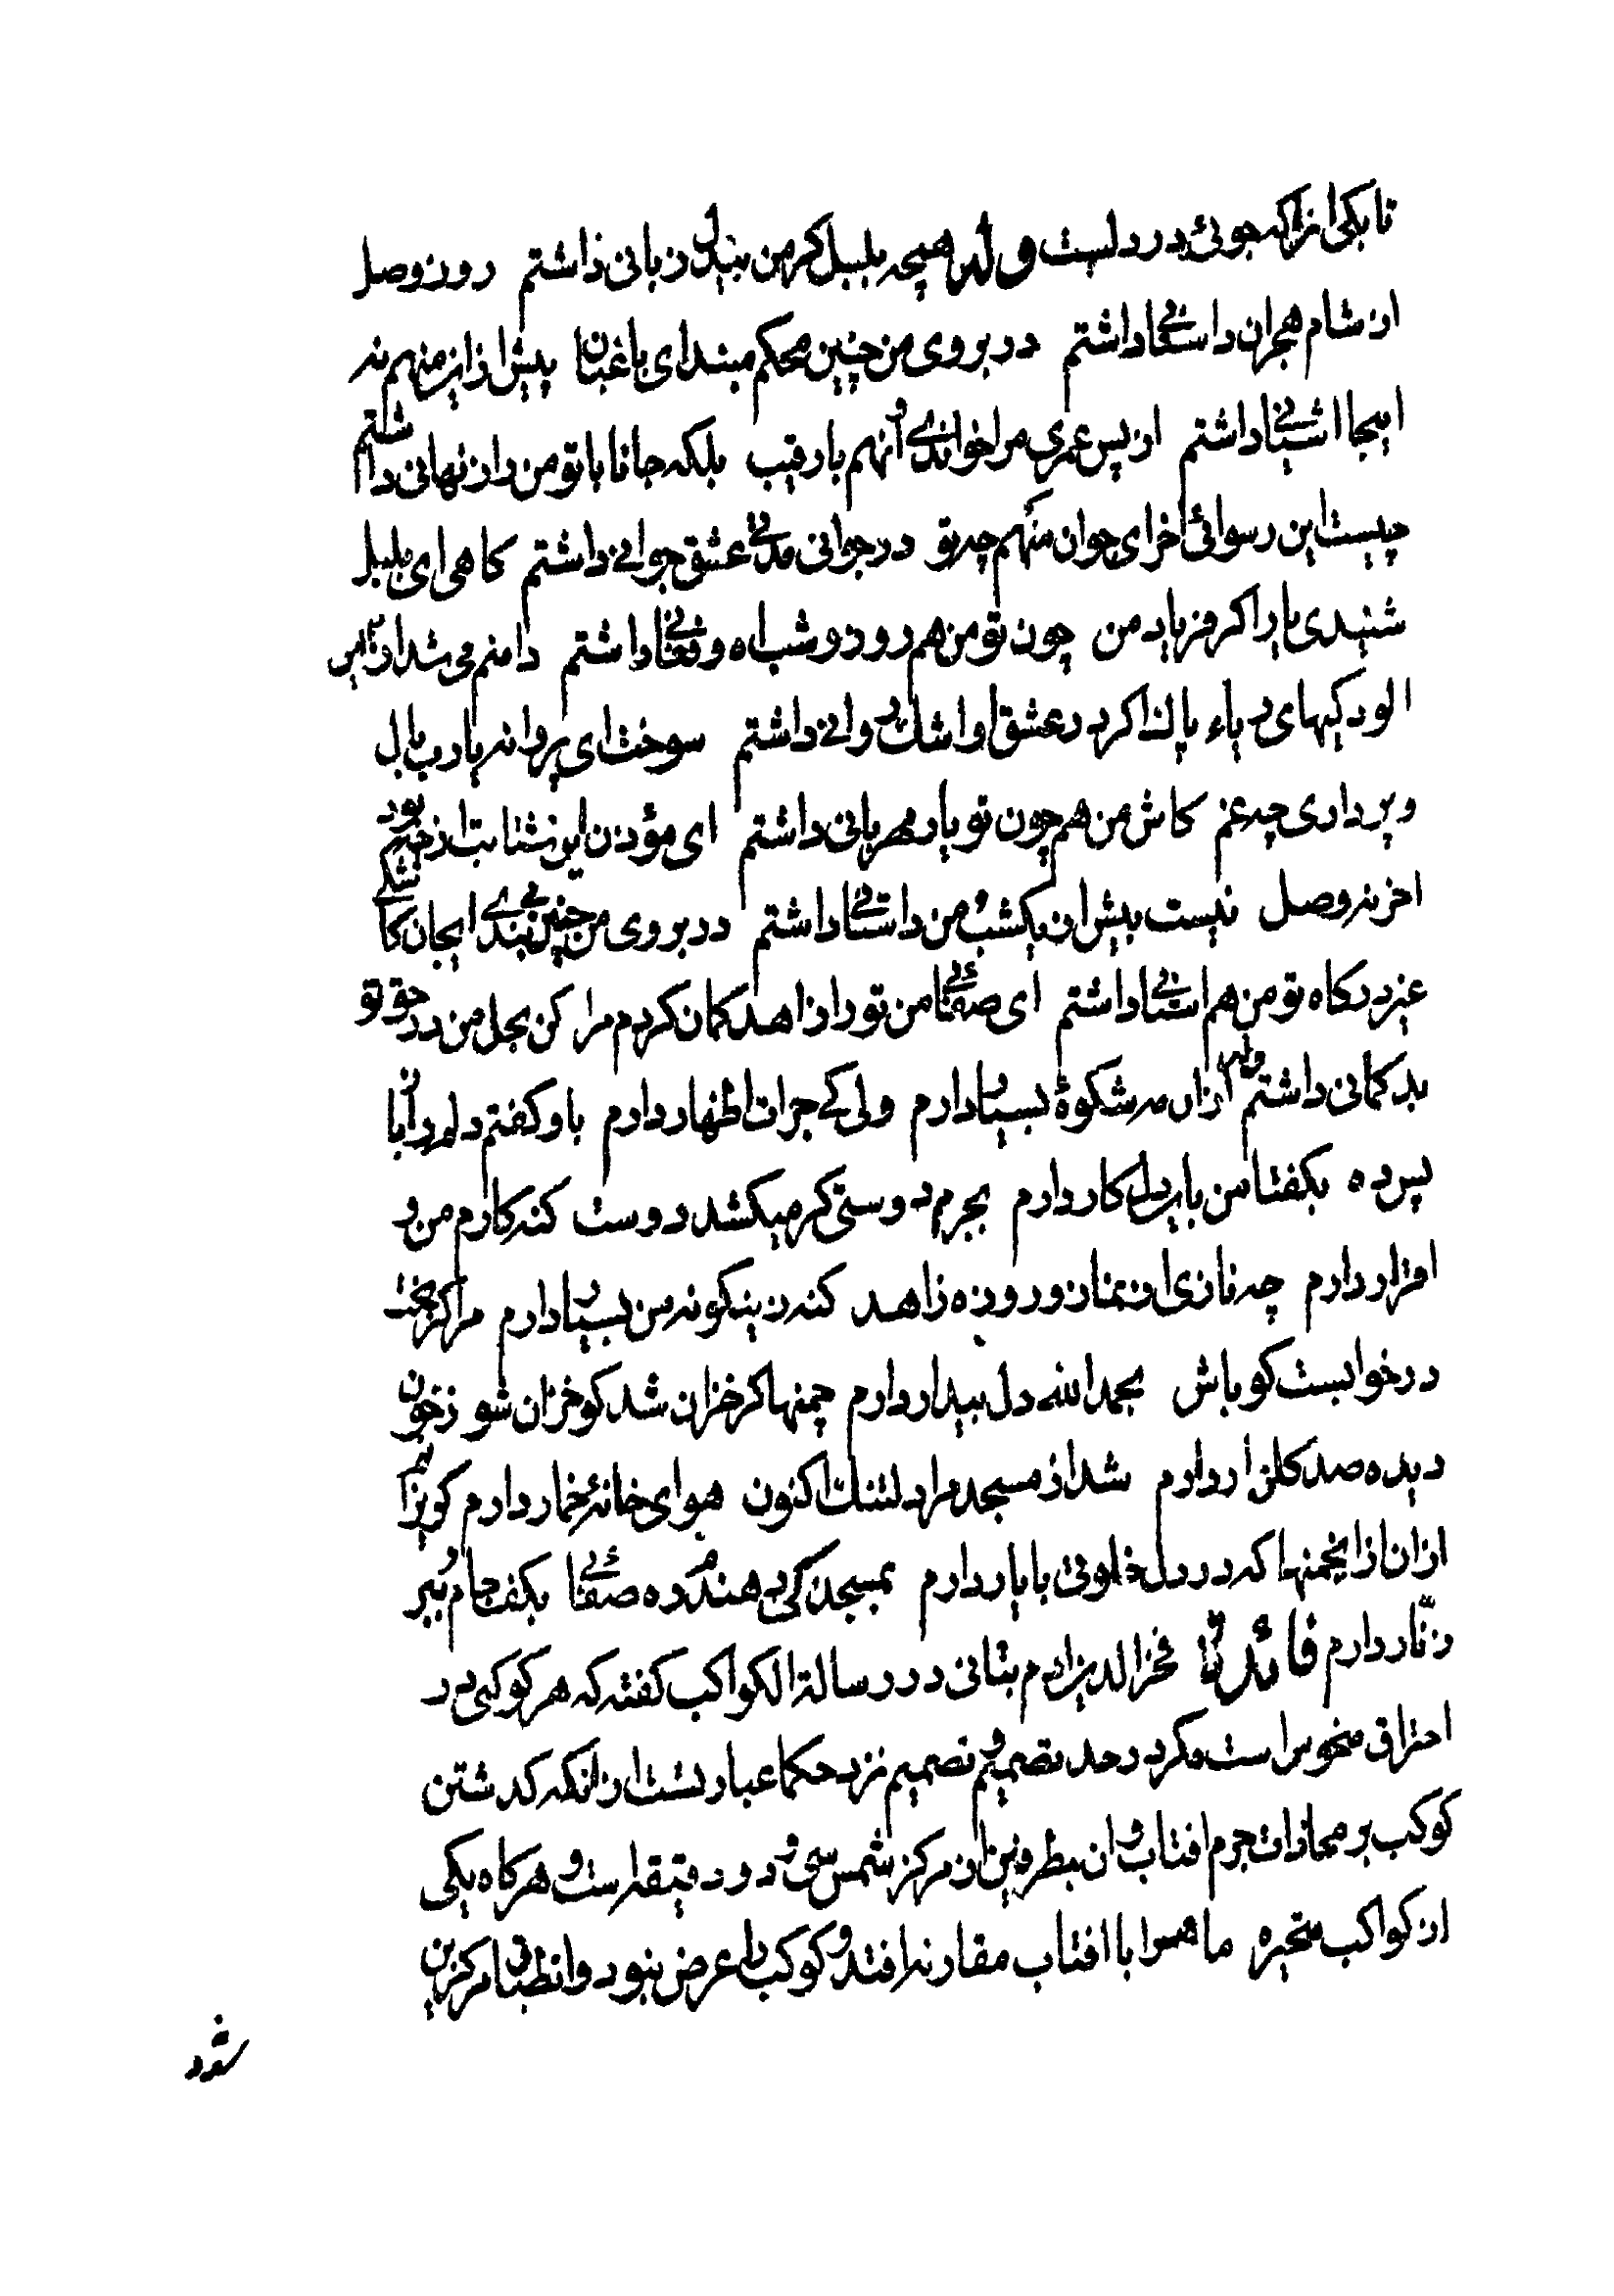 تا بکی انرا که جوئی در دلست وله صیحه بلبل کر من بیدل زبانی داشتم روز وصل
از شام هجران داستانی داشتم در بروی من چنین محکم مبند ای باغبان پیش ازین منهم به
اینجا اشیانی داشتم از پس عمری مرا خواندی و انهم با رقیب بلکه جانا با تو من راز نهانی داشتم
چیست این رسوائی اخر ای جوان منهم چه تو در جوانی مدتی عشق جوانی داشتم کاهی ای بلبل
شنیدی یار اکر فریاد من چون تو من هم روز و شب اه و فغانی داشتم دامنم می شد از این
الودکیهای ریاء پاک اکر در عشق او اشک روانی داشتم سوختی ای پروانه یا رب بال
و پر داری چه غم کاش من هم چون تو یار مهربانی داشتم ای مؤذن این شتابت از چه بود
اخر نه وصل نیست بیش از یکشب و من داستانی داشتم در بروی من چنین بندی ایجان کا
غیر درکاه تو من هم استانی داشتم ای صفائی من تو را زاهد کمان کردم مرا کن بحل من در حق تو
بد کمانی داشتم وله ازان مه شکوهٔ بسیار دارم ولی کی جرات اظهار دارم باو کفتم دلم را یا
پس ده بکفتا من باین دل کار دارم بجرم دوستی کر میکشد دوست کنه کارم من و
اقرار دارم چه نازی از نماز و روزه زاهد کنه زینکونه من بسیار دارم مرا کر بخت
در خوابست کو باش بحمد الله دل بیدار دارم چمنها کر خزان شد کو خزان شو ز خون
دیده صد کلزار دارم شد از مسجد مرا دلتنک اکنون هوای خانهٔ خمار دارم کریزانم
ازان از انجمنها که در دل خلوتی با یار دارم بمسجد کی دهندم ره صفائی بکف جام و ببر
زنّار دارم فائدة فخر الدین بتانی در رسالة الکواکب کفته که هر کوکبی در
احتراق منحوس است مکر در حد تصمیم و تصمیم نزد حکما عبارتست از انکه کذشتن
کوکب بر محاذات جرم افتاب و ان بطرفین از مرکز شمس سی و دو دقیقه است و هر کاه یکی
از کواکب متحیره ما همرا با افتاب مقارنه افتد و کوکب را عرض نبود و انطباق مرکزین
شود